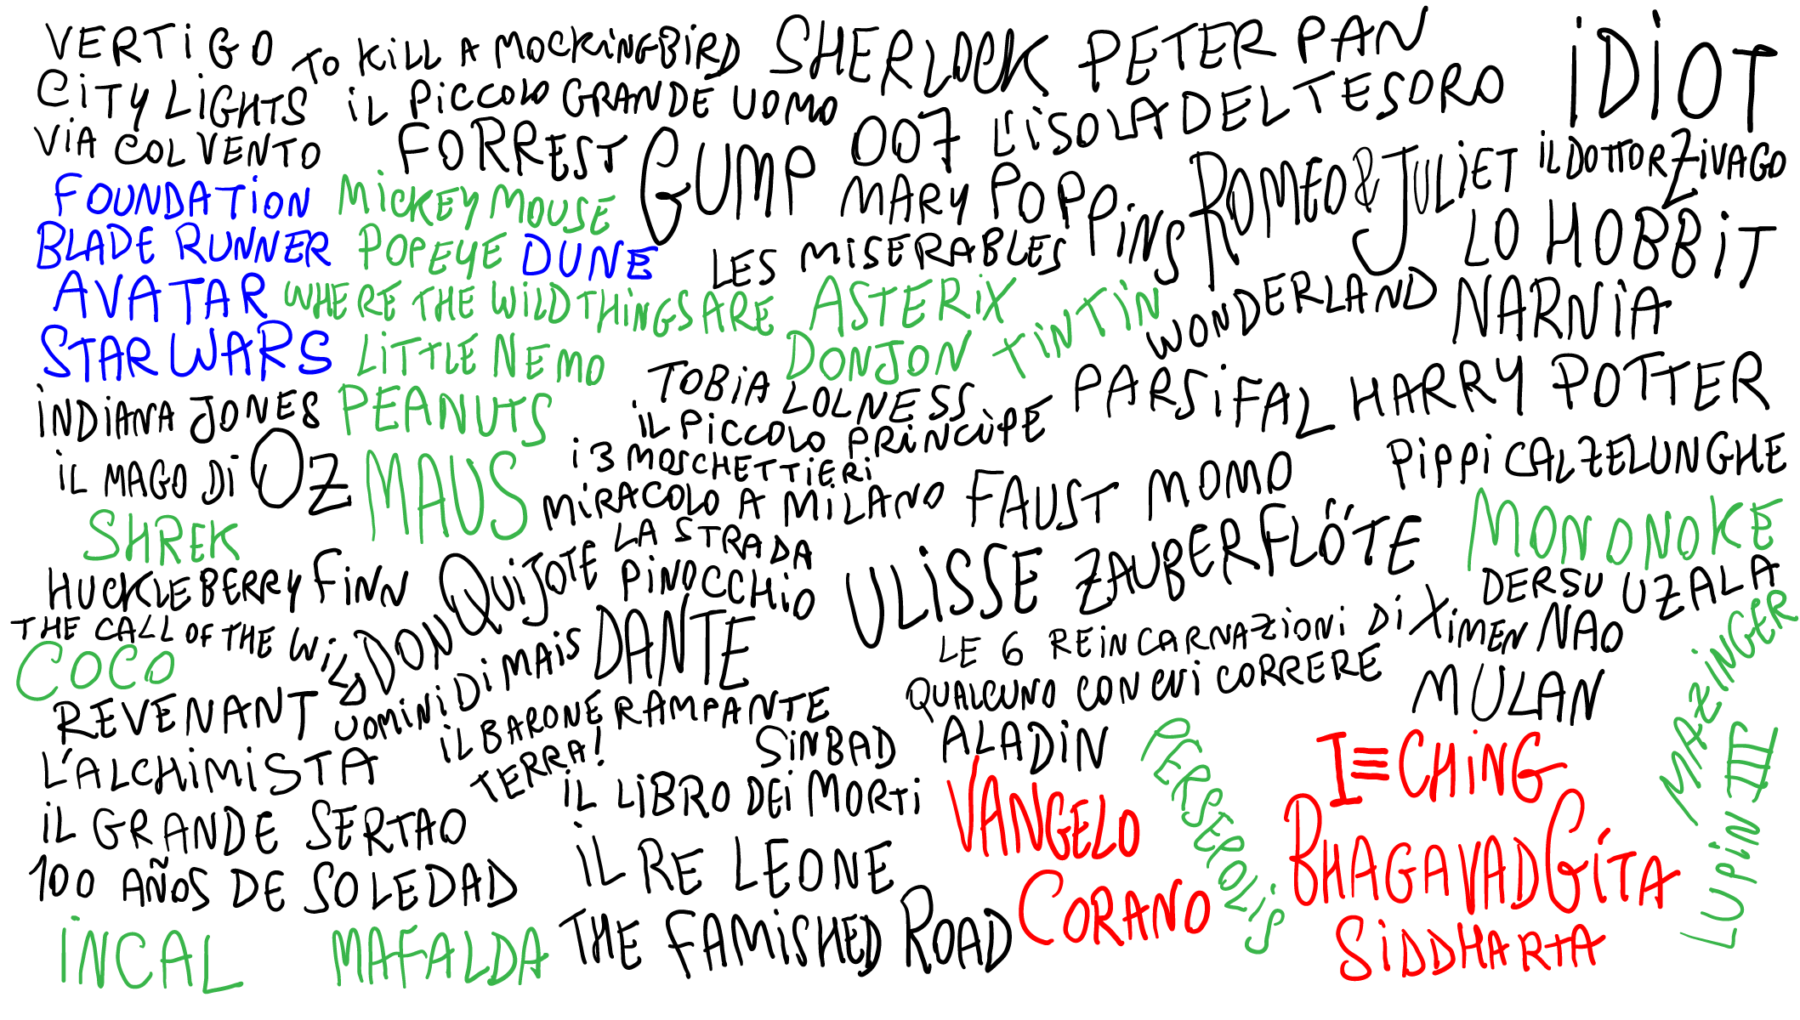 VERTIGO
TO KILL A MOCKINGBIRD
SHERLOCK
PETER PAN
IDIOT
CITY LIGHTS
IL PICCOLO GRANDE UOMO
007
L'ISOLA DEL TESORO
VIA COL VENTO
FORREST GUMP
MARY POPPINS
ROMEO & JULIET
IL DOTTOR ZIVAGO
FOUNDATION
MICKEY MOUSE
LO HOBBIT
BLADE RUNNER
POPEYE
DUNE
LES MISERABLES
AVATAR
WHERE THE WILD THINGS ARE
ASTERIX
TINTIN
WONDERLAND
NARNIA
STAR WARS
LITTLE NEMO
DONJON
TOBIA LOLNESS
PARSIFAL
HARRY POTTER
INDIANA JONES
PEANUTS
IL PICCOLO PRINCIPE
IL MAGO DI OZ
MAUS
I 3 MOSCHETTIERI
MIRACOLO A MILANO
FAUST
MOMO
PIPPI CALZELUNGHE
SHREK
LA STRADA
ULISSE
ZAUBERFLÖTE
MONONOKE
HUCKLEBERRY FINN
DON QUIJOTE
PINOCCHIO
DERSU UZALA
THE CALL OF THE WILD
DANTE
LE 6 REINCARNAZIONI DI XIMEN NAO
COCO
UOMINI DI MAIS
QUALCUNO CON CUI CORRERE
MULAN
MAZINGER
REVENANT
IL BARONE RAMPANTE
SINBAD
ALADIN
PERSEPOLIS
I≡CHING
LUPIN III
L'ALCHIMISTA
TERRA!
IL LIBRO DEI MORTI
VANGELO
IL GRANDE SERTAO
IL RE LEONE
BHAGAVADGITA
100 AÑOS DE SOLEDAD
THE FAMISHED ROAD
CORANO
SIDDHARTA
INCAL
MAFALDA